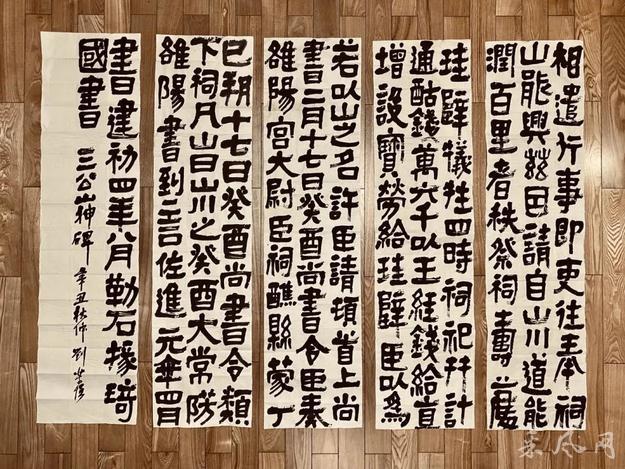 相遣行事即吏往奉祠
山能興茲請自山川道能
潤百里者秩祭祠
珪璧犧牲四時祠祀并計
通酤錢萬六千以王經錢給直
增設寶勞給珪璧臣以為
若以山之名許臣請頓首上尚
書二月十七日癸酉尚書令臣奏
雒陽宮大尉臣祠醮縣蒙丁
巳朔十七日癸酉尚書令類
下祠凡山日山川之癸酉大常
雒陽書到言佐進元年四月
書日建初四年八月勒石掾琦
國書 三公山神碑 辛丑秋仲 劉
采风网